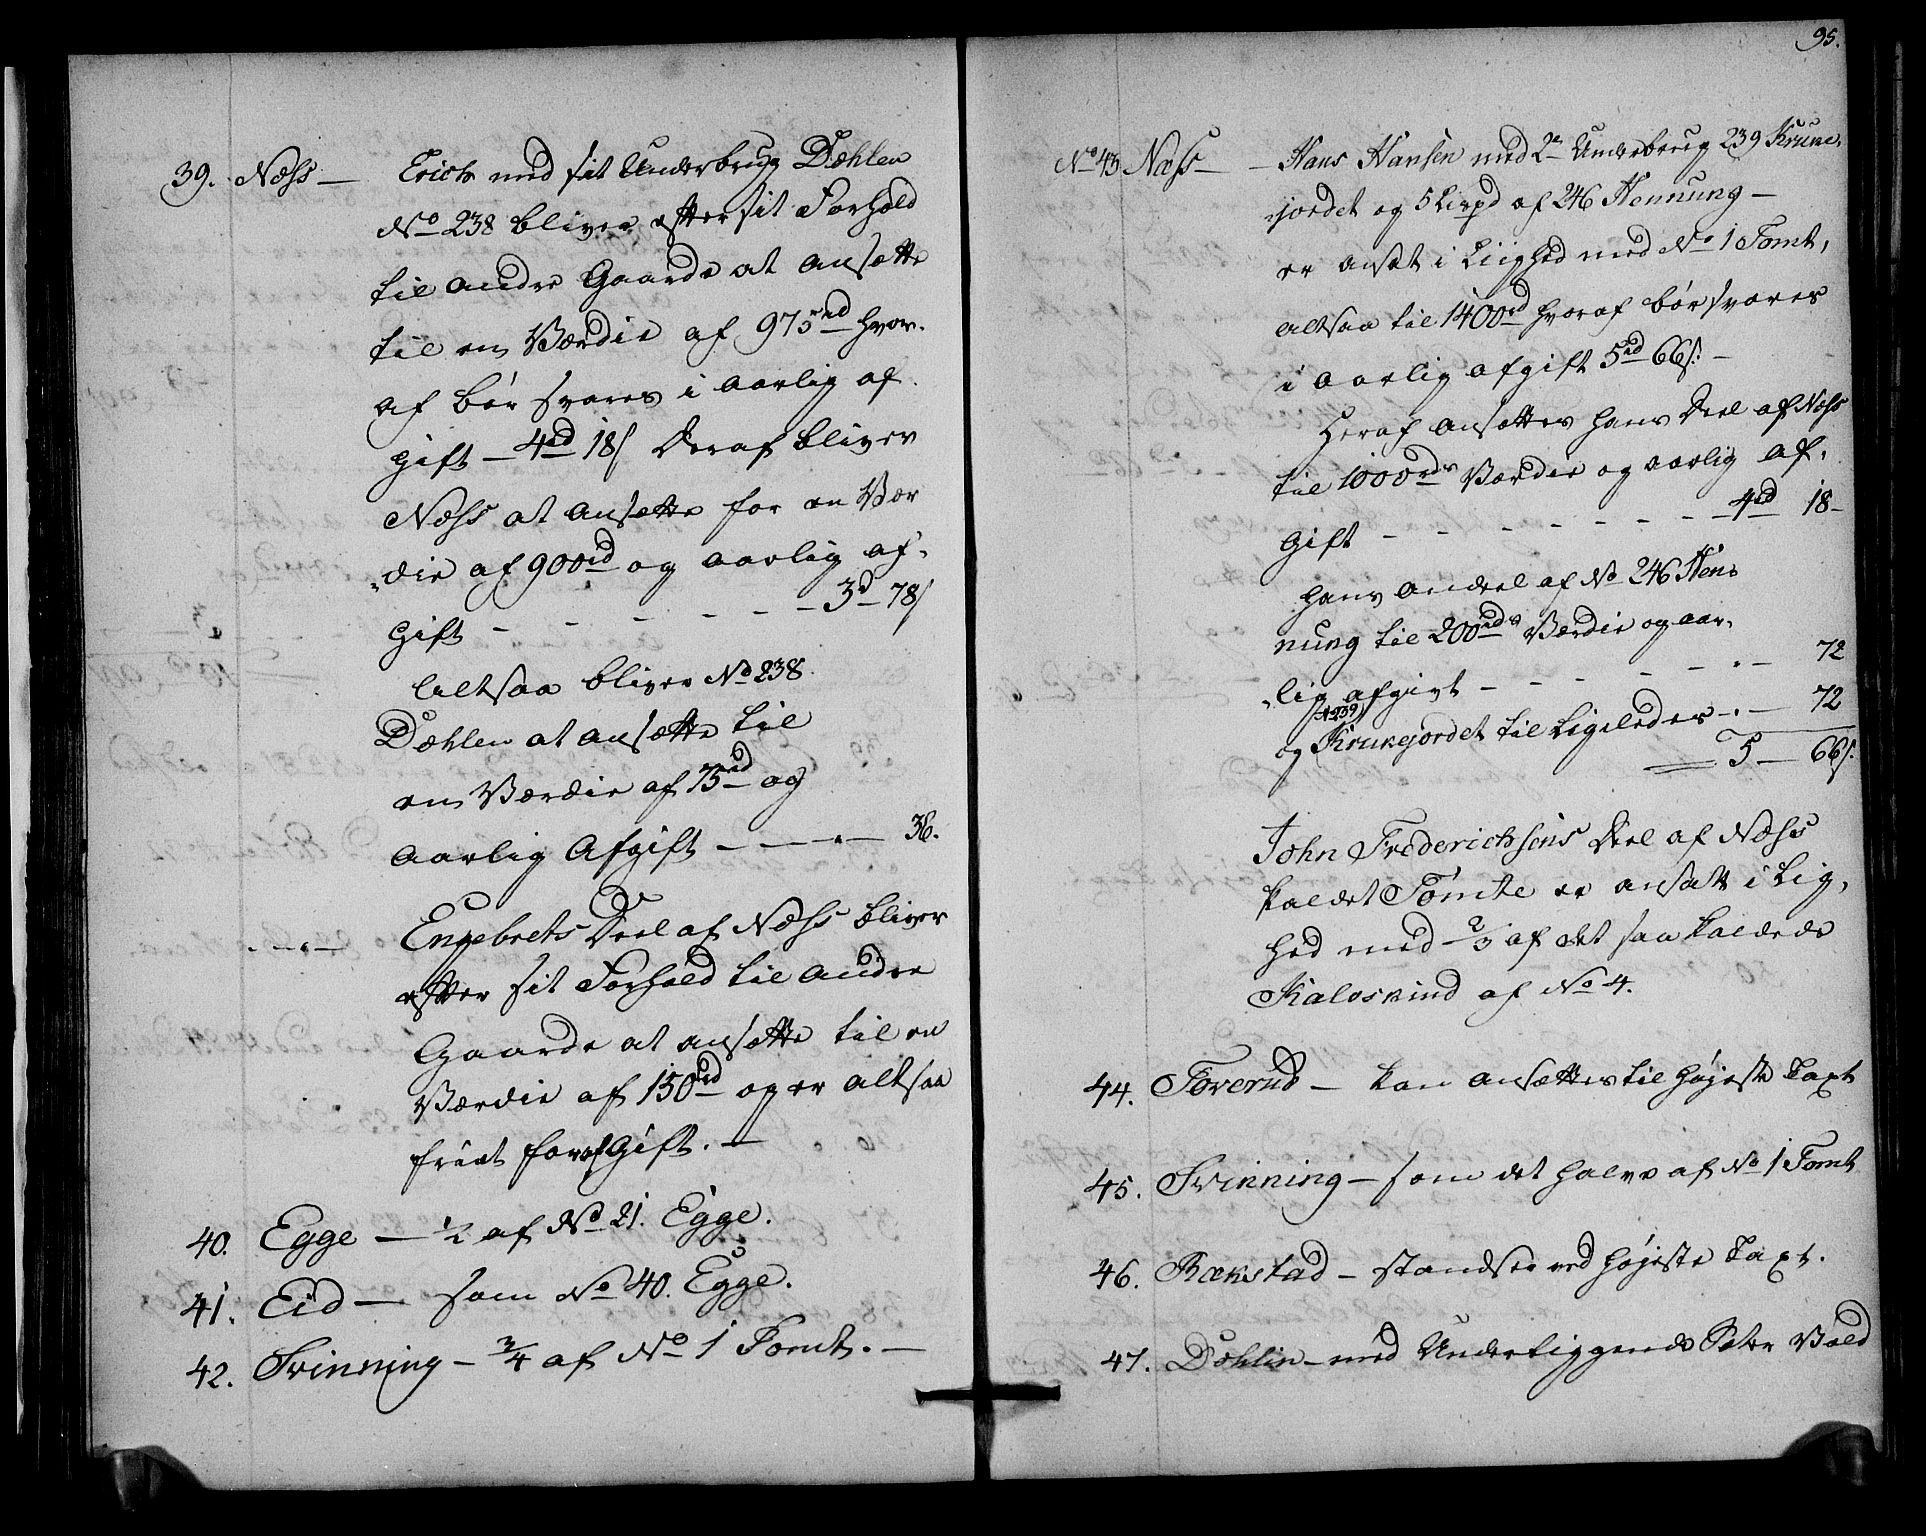 39. Næss — Erich med sit Underbrug Dæhlen
No 238 bliver efter sit Forhold
til andre Gaarde at ansætte
til en Værdie af 975 rd hvor-
af bør svares i aarlig af-
gift — 4 rd 18 s Deraf bliver
Næss at ansætte for en Vær
„die af 900 rd og aarlig af-
gift - - - - - - 3 d 78 s
Altsaa bliver No 238
Dæhlen at ansætte til
en Værdie af 75 rd og
aarlig Afgift - - - „ — 36.
- - „ — Engebrets Deel af Næss bliver
efter sit Forhold til andre
Gaarde at ansætte til en
Værdie af 150 rd og er altsaa
friet for afGift. —
40. Egge — 1/2 af No 21. Egge.
41. Eid — som No 40. Egge.
42. Svinning — 3/4 af No 1 Tomt. —
95.
No 43 Næss — Hans Hansen med 2de Underbrug 239 Krune-
„jordet og 5 Lispd af 246 Hennung —
er ansat i Liighed med No 1 Tomt,
altsaa til 1400 rd hvoraf bør svares
i aarlig afgift 5 rd 66 s. —
Heraf ansættes hans Deel af Næss
til 1000 rds Værdie og aarlig af-
gift - - - - - - - 4 rd 18 -
hans Andeel af No 246 Hen-
nung til 200 rds Værdie og aar-
„lig afgivt - - - - - „ — 72
No 239
og Krunejordet til ligeledes - „ — 72
5 — 66 s.
John Frederichsens Deel af Næss
kaldet Tomte er ansatt i Lig-
hed med 2/3 af det saa kaldede
Kaloskind af No 4.
44. Foverud — kan ansættes til højeste Taxt
45. Svinning — som det halve af No 1 Tomt
46. Rækstad — standser ved højeste Taxt.
47. Dæhlin — med Underliggende Sæter Vold